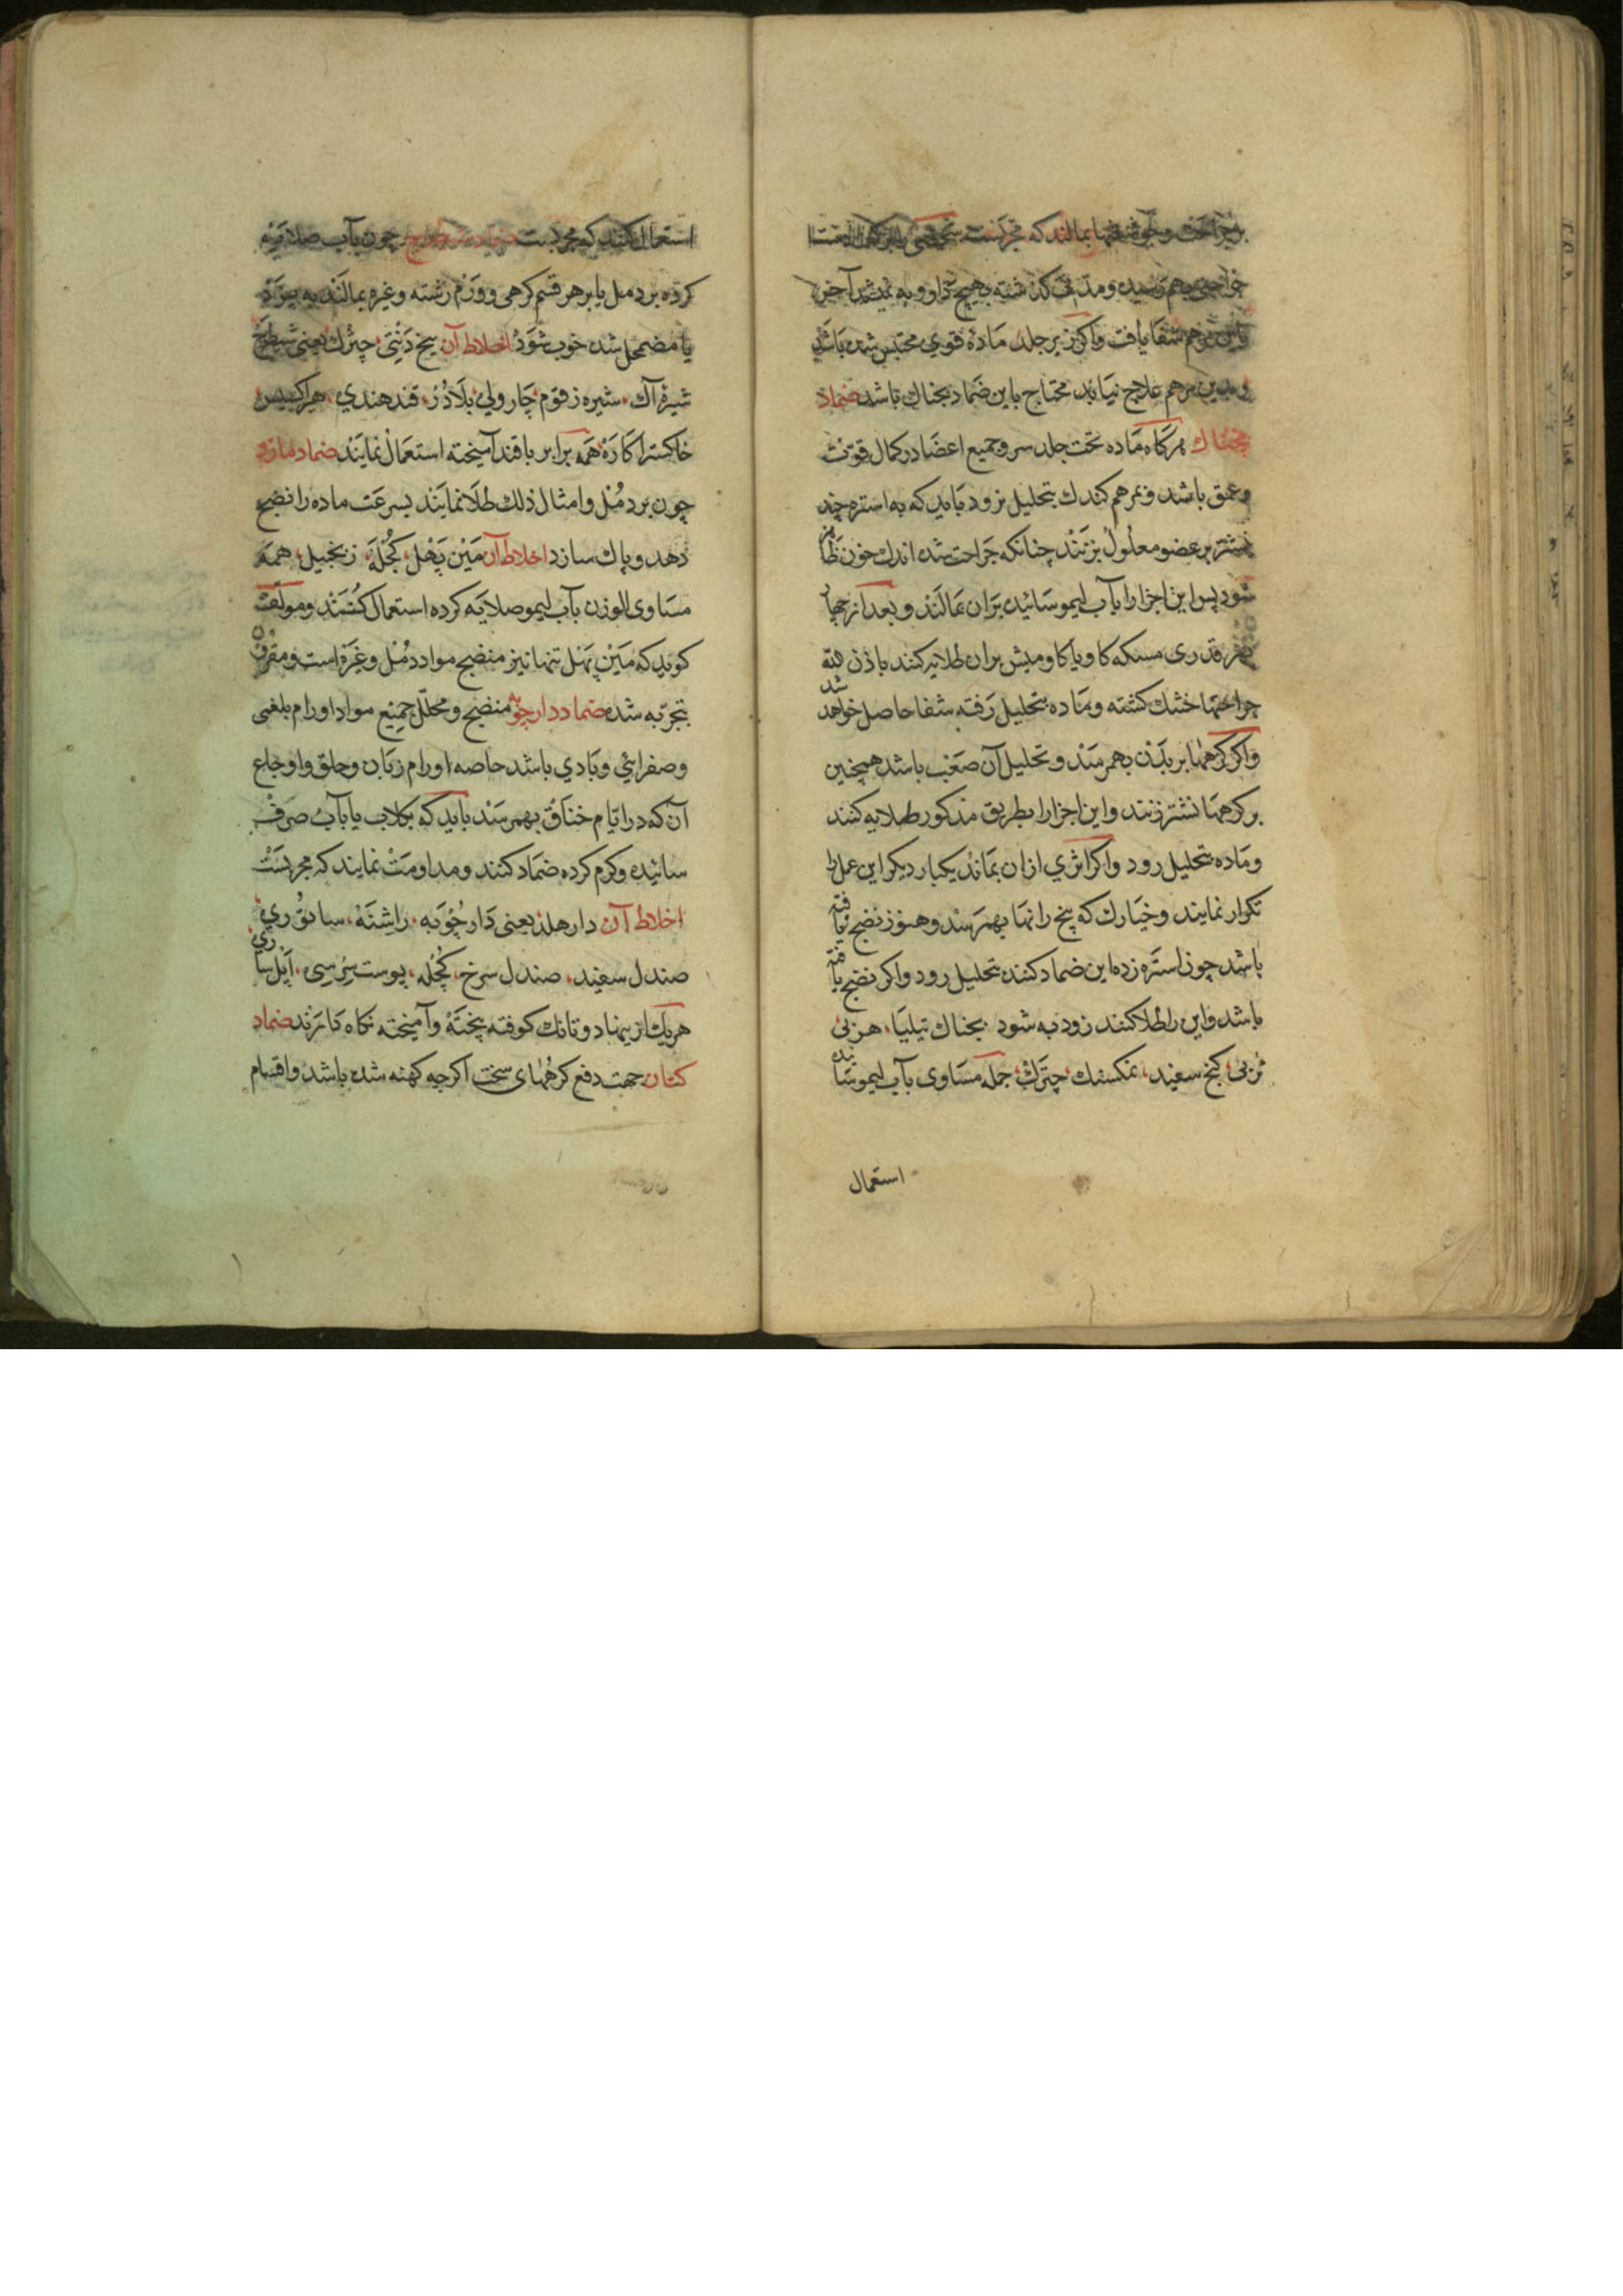 بر جراحت و قرحها بمالند که مجربست شخصی را بر کف دست
جراحتی بهم رسیده و مدتی گذشته بهیچ دارو به نمیشد آخر
باین مرهم شفا یافت واکر زیر جلد ماده قوی محتبس شده باشد
و بدین مرهم علاج نیابد محتاج باین ضماد بجناک باشد ضماد
بجناک هرکاه ماده تحت جلد سر و جمیع اعضا در کمال قوت
وعمق باشد و بمرهم کندک بتحلیل نرود باید که به استره چند
نشتر بر عضو معلول بزنند چنانکه جراحت شده اندک خون ظاهر
شود پس این اجزا را بآب لیمو سائیده بران بمالند و بعد از چهار
قدری مسکه کاو یا کاومیش بران طلایه کنند باذن الله
جراحتها خشک کشته و ماده بتحلیل رفته شفا حاصل خواهد شد
واکر کرهها بر بدن بهم رسند و تحلیل آن صعب باشد همچنین
بر کرهها نشتر زنند و این اجزا را بطریق مذکور طلایه کنند
و ماده بتحلیل رود واکر اثری ازان بماند یکبار دیکر این عمل را
تکرار نمایند و خیارک که بیخ رانها بهم رسد و هنوز نضج نیافته
باشد چون استره زده این ضماد کنند بتحلیل رود واکر نضج یافته
باشد و این را طلا کنند زود به شود بجناک تیلیا، هزبی
تربی، کنج سفید، نمکسنک، چترک، جمله مساوی بآب لیمو سائیده
استعمال
استعمال کنند که مجربست ضماد شیطرج چون بآب صلایه
کرده بر دمل یا بر هر قسم کرهی و ورم رشته و غیره بمالند به پزد
یا مضمحل شده خوب شود اخلاط آن بیخ دنتی، چترک یعنی شیطرج
شیره آک، شیره زقوم، چارولی، بلاذر، قند هندی، هیراکسیس
خاکستر اکاره، همه برابر با قند آمیخته استعمال نمایند ضماد
چون بر دمل و امثال ذلک طلا نمایند بسرعت ماده را نضج
دهد و پاک سازد اخلاط آن مین پهل، کجله، زنجبیل، همه
مساوی الوزن بآب لیمو صلایه کرده استعمال کنند و مولف
کوید که مین پهل تنها نیز منضج مواد دمل و غیره است و مقرون
بتجربه شده ضماد دارچوبه منضج و محلل جمیع مواد اورام بلغمی
و صفرائی و بادی باشد خاصه اورام زبان و حلق و اوجاع
آن که در ایام خناق بهم رسد باید که بکلاب یا بآب صرف
سائیده و کرم کرده ضماد کنند و مداومت نمایند که مجربست
اخلاط آن دار هلد یعنی دارچوبه، راشنه، سا نوری
صندل سفید، صندل سرخ، کچله، پوست سرسی، اپل ساری
هر یک از ینها دو تانک کوفته پخته و آمیخته نکاه دارند ضماد
کتان جهت دفع کرههای سخت اکرچه کهنه شده باشد و اقسام